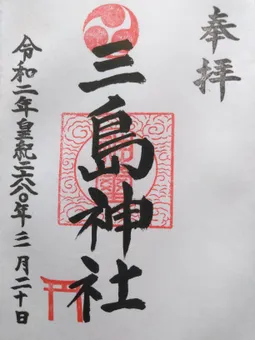 奉拝
三島神社
令和二年皇紀二六八〇年二月二十日